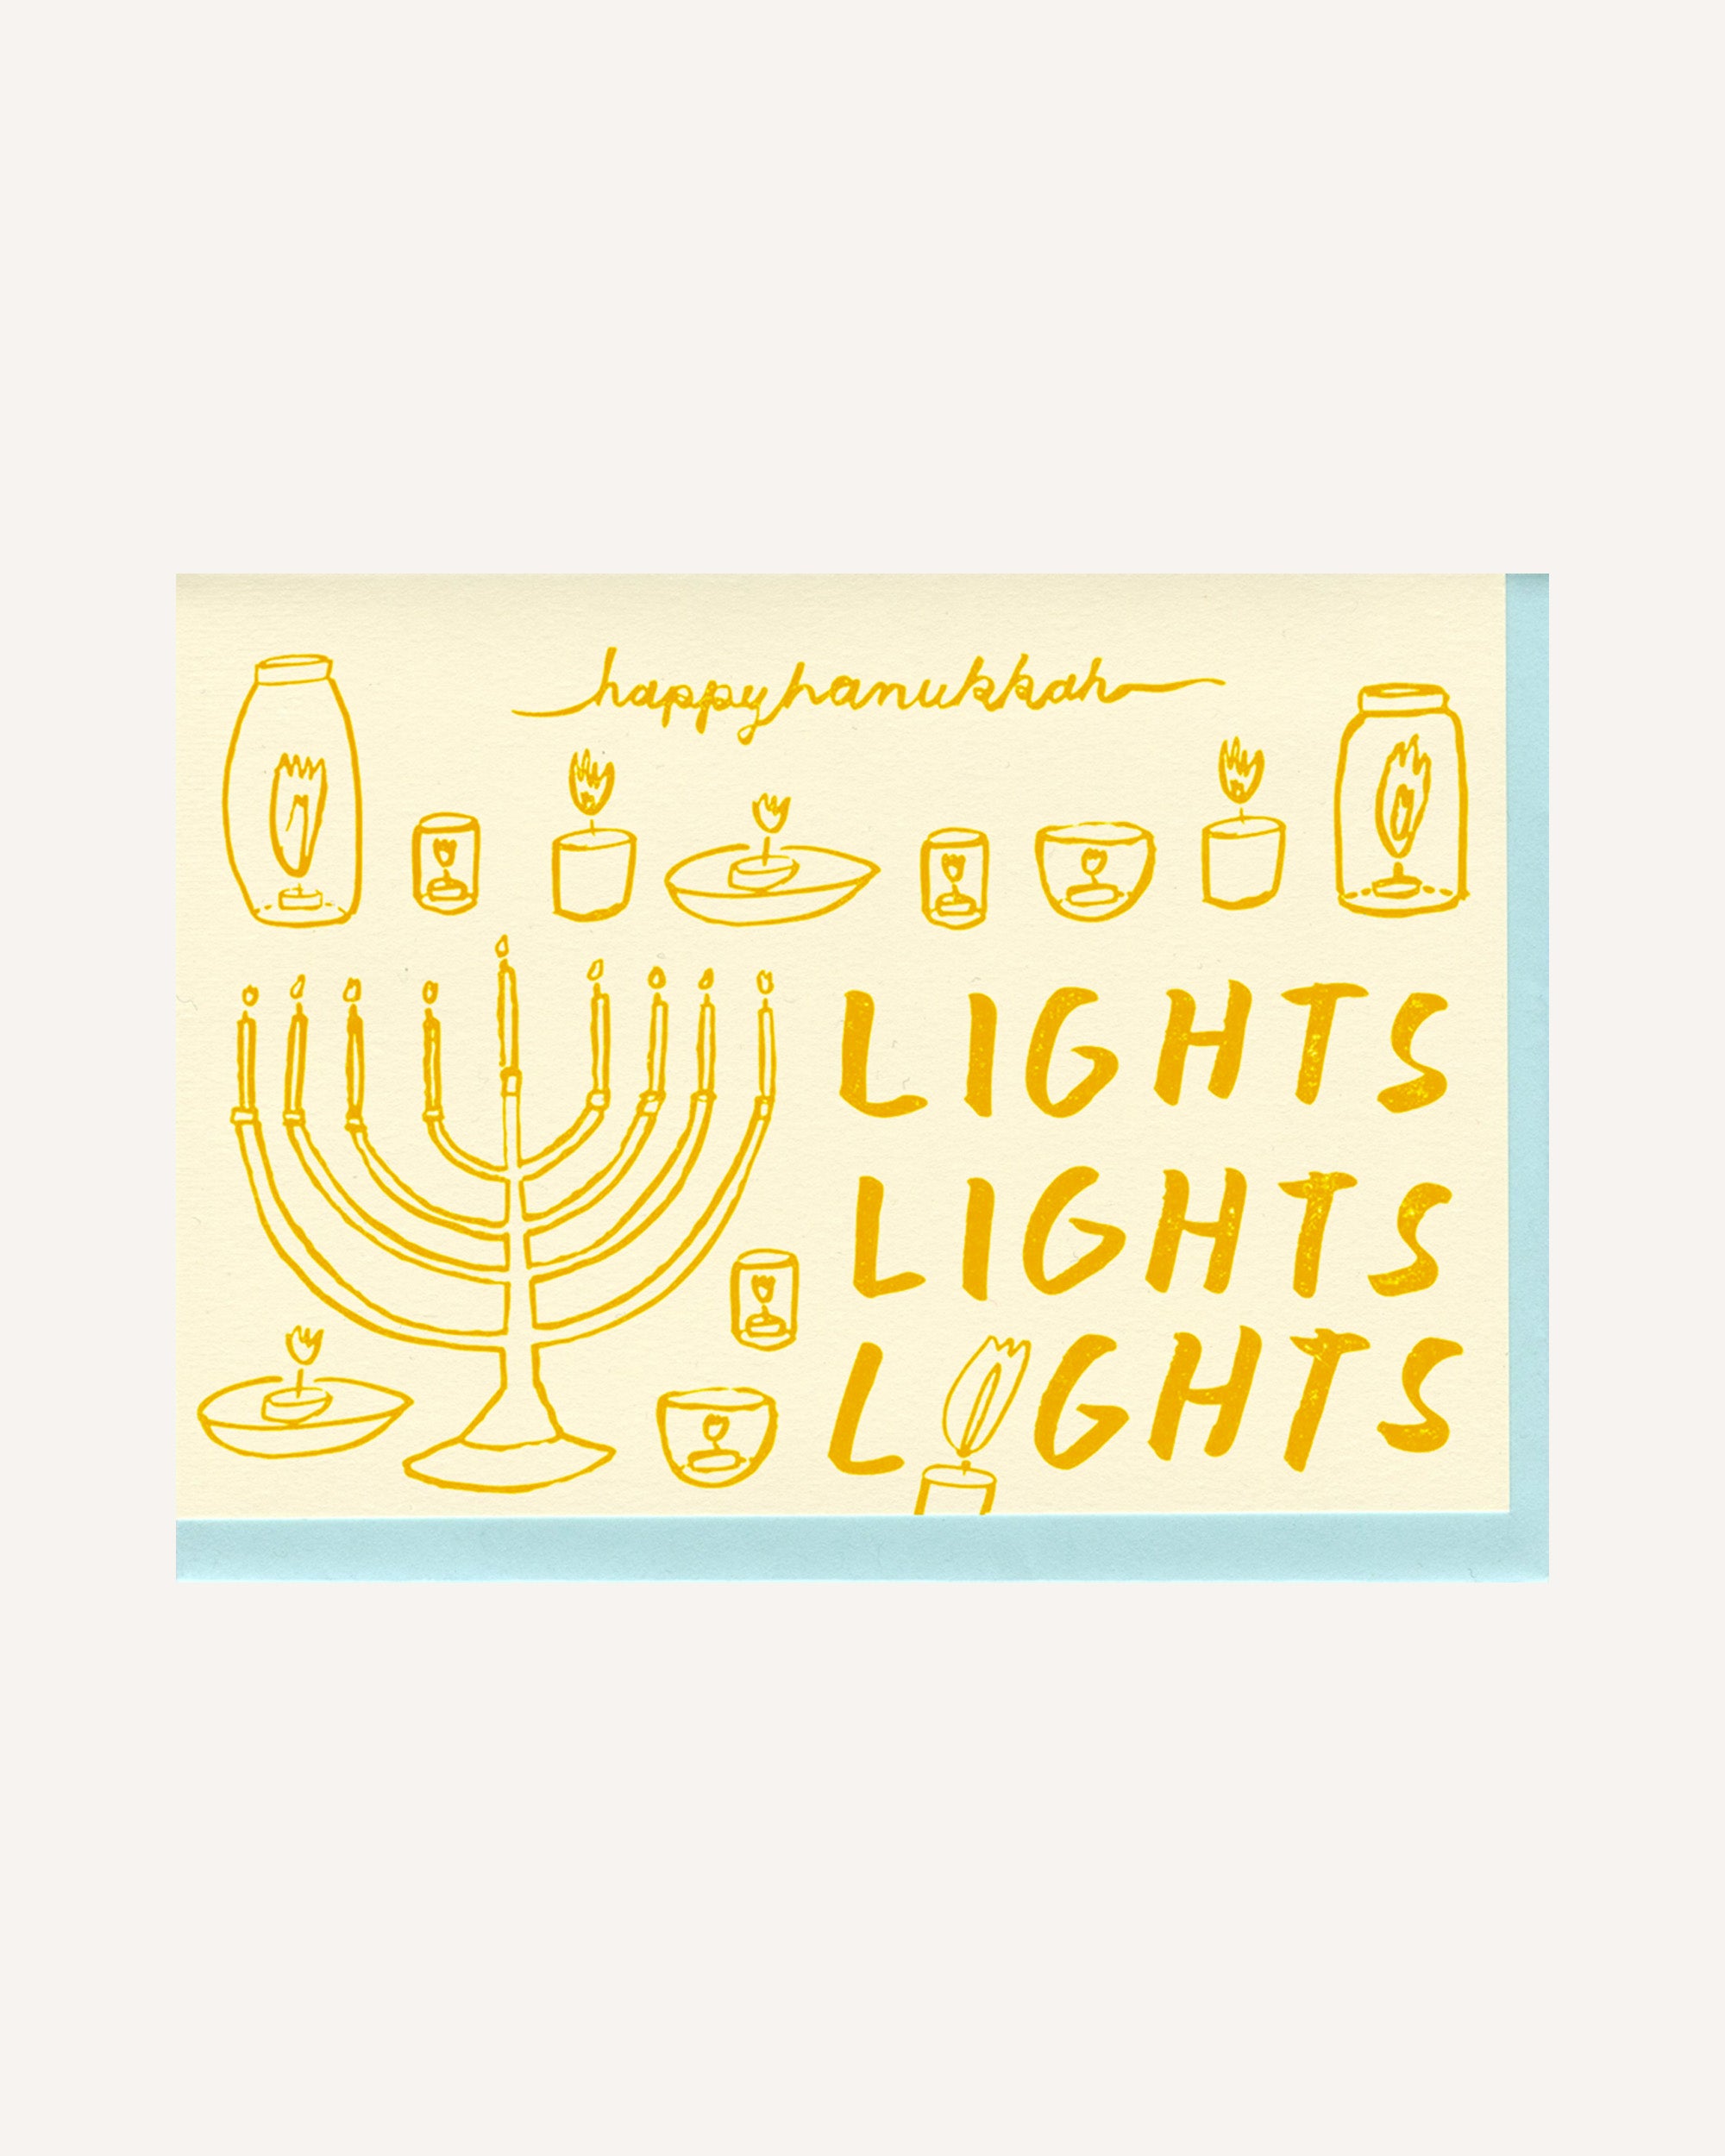 happy hanukkah
LIGHTS
LIGHTS
LIGHTS